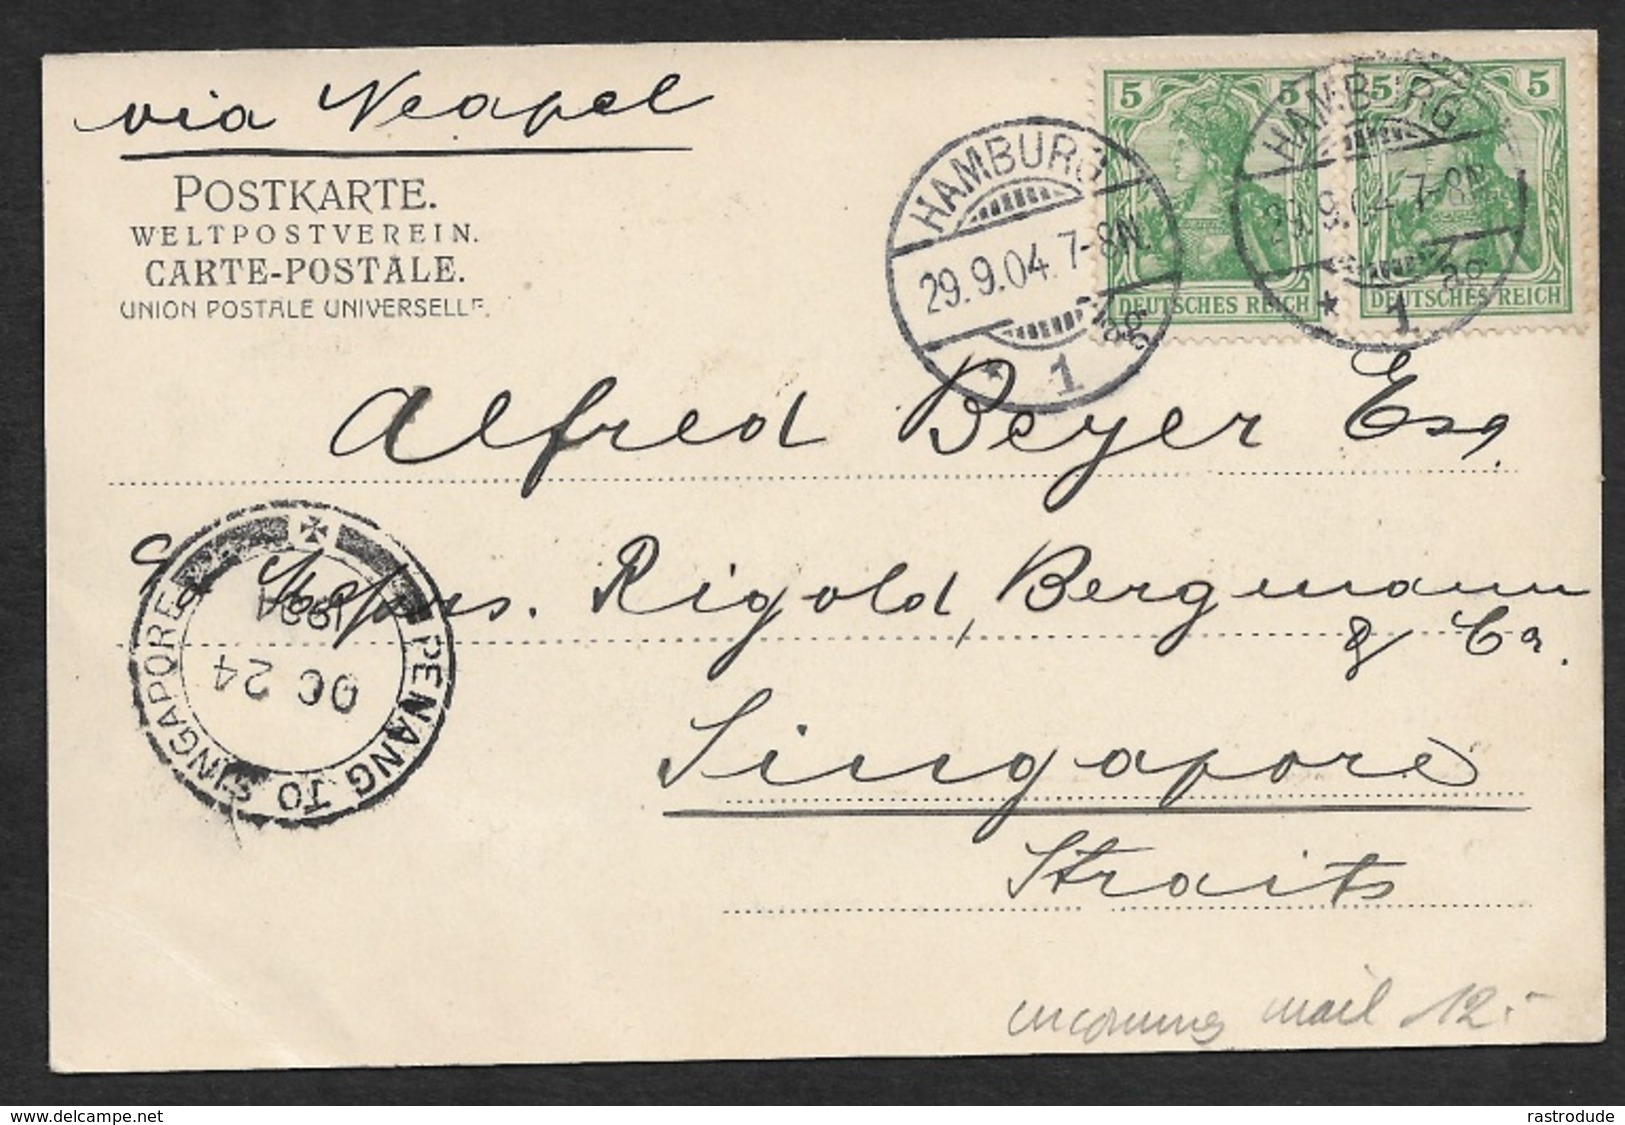 via Neapel
POSTKARTE.
WELTPOSTVEREIN.
CARTE-POSTALE.
UNION POSTALE UNIVERSELLE.
HAMBURG
29.9.04. 7-8N.
* 1
5 5
DEUTSCHES REICH
HAMBURG
29.9.04. 7-8N
* 1
5 5
DEUTSCHES REICH
Alfred Beyer Esq
Rigold, Bergmann
& Co.
Singapore
Straits
PENANG TO SINGAPORE
OC 24
1904
incoming mail 12.-
www.delcampe.net
rastrodude